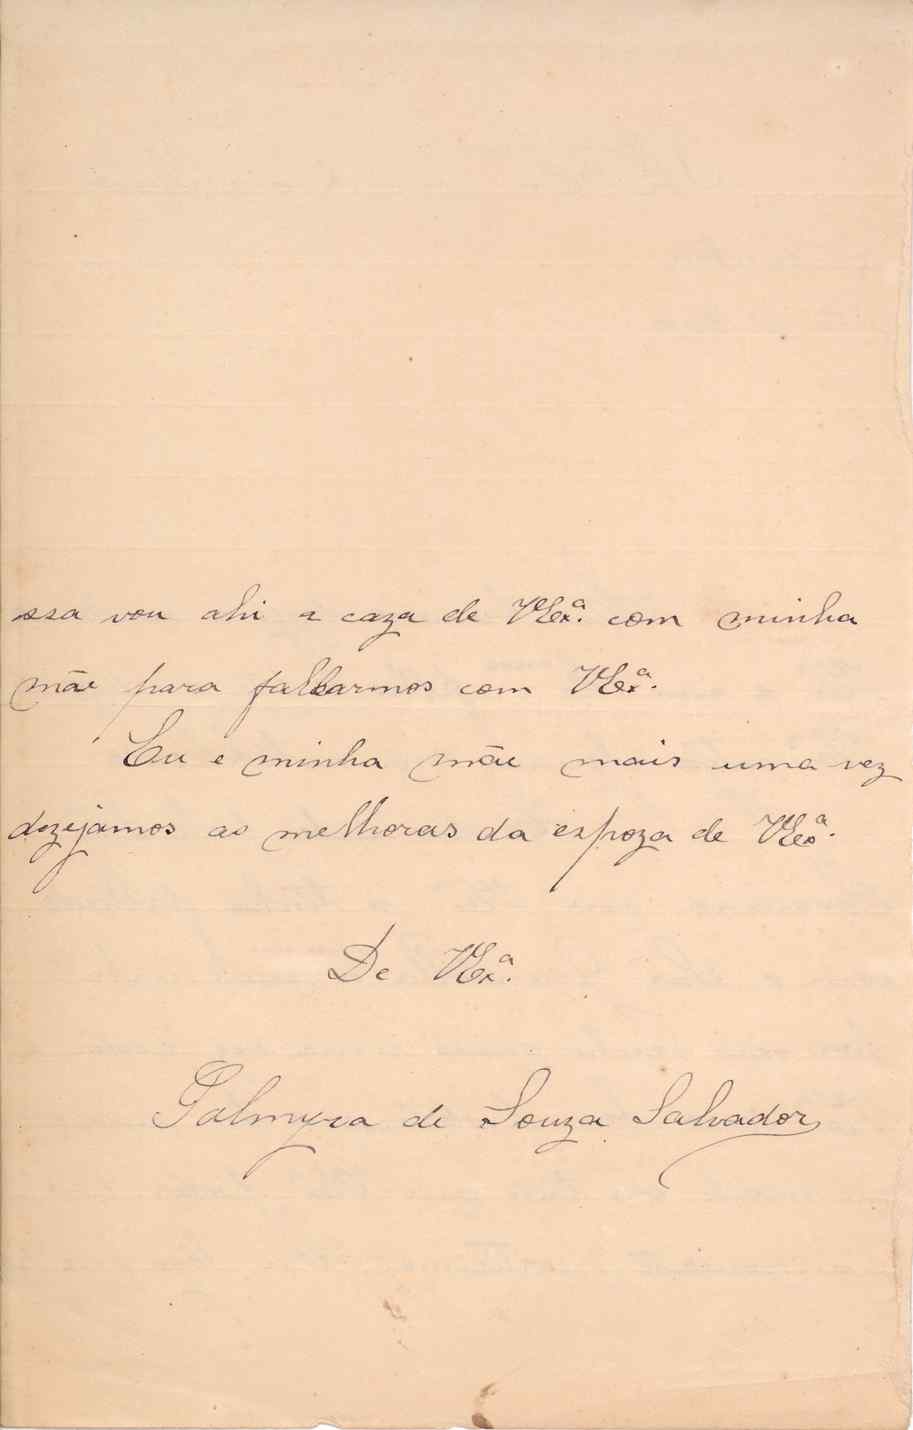 ssa vou ahi a caza de VExª. com minha
mãe para fallarmos com VExª.
Eu e minha mãe mais uma vez
dezejamos as melhoras da espoza de VExª.
De VExª.
Palmyra de Souza Salvador